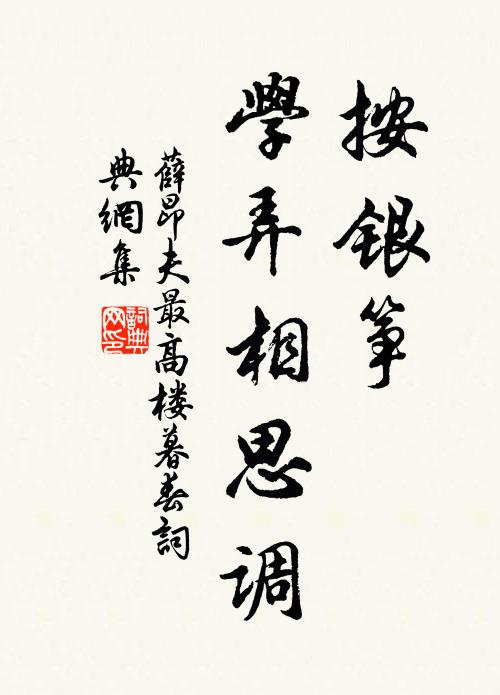 按银筝
學弄相思调
薛昂夫最高楼暮春詞
典網集
詞典网印